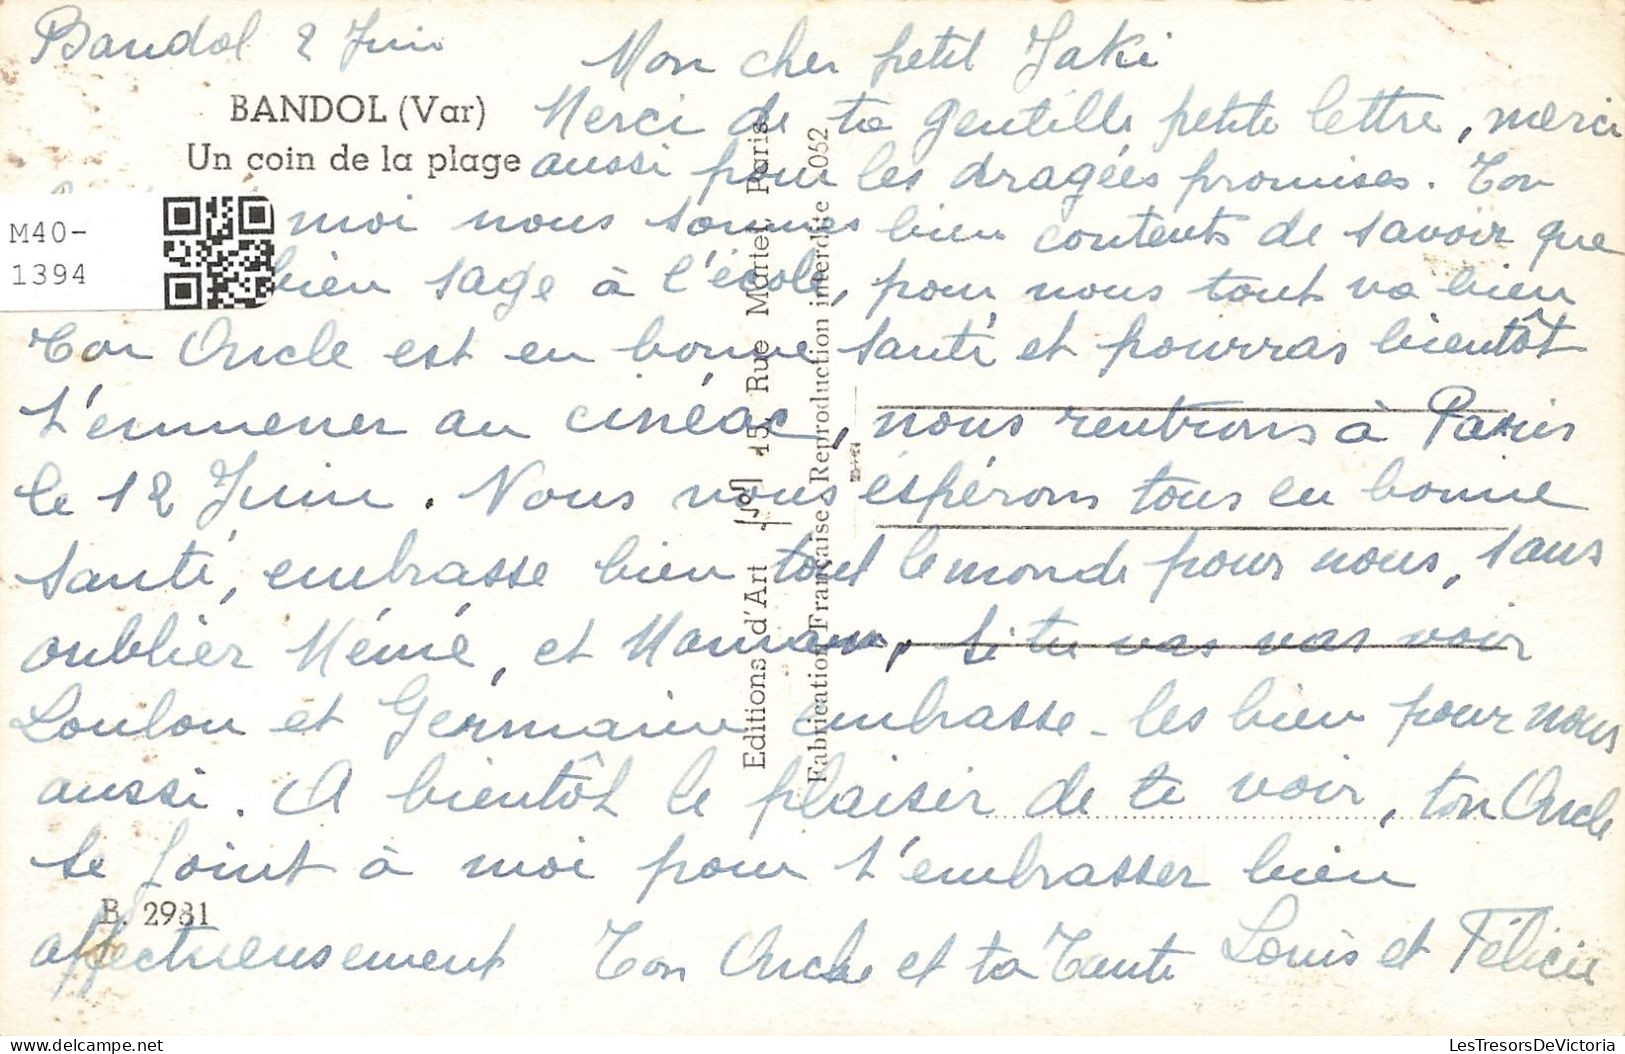 Bandol 2 Juin
Mon cher petit Jaki
BANDOL (Var)
Un coin de la plage
Merci de ta gentille petite lettre, merci
aussi pour les dragées promises. Ton
moi nous sommes bien contents de savoir que
bien sage à l'école, pour nous tout va bien
Ton Oncle est en bonne santé et pourras bientôt
t'emmener au cinéac, nous rentrons à Paris
le 12 Juin. Nous vous espérons tous en bonne
santé, embrasse bien tout le monde pour nous, sans
oublier Mémé, et Maman, si tu vas vas voir
Loulou et Germaine embrasse-les bien pour nous
aussi. A bientôt le plaisir de te voir, ton Oncle
se joint à moi pour t'embrasser bien
affectueusement Ton Oncle et ta Tante Louis et Félicie
B. 2981
Editions d'Art "Jo" 15, Rue Martel, Paris
Fabrication Française Reproduction interdite 1052
M40-
1394
delcampe.net
LesTresorsDeVictoria